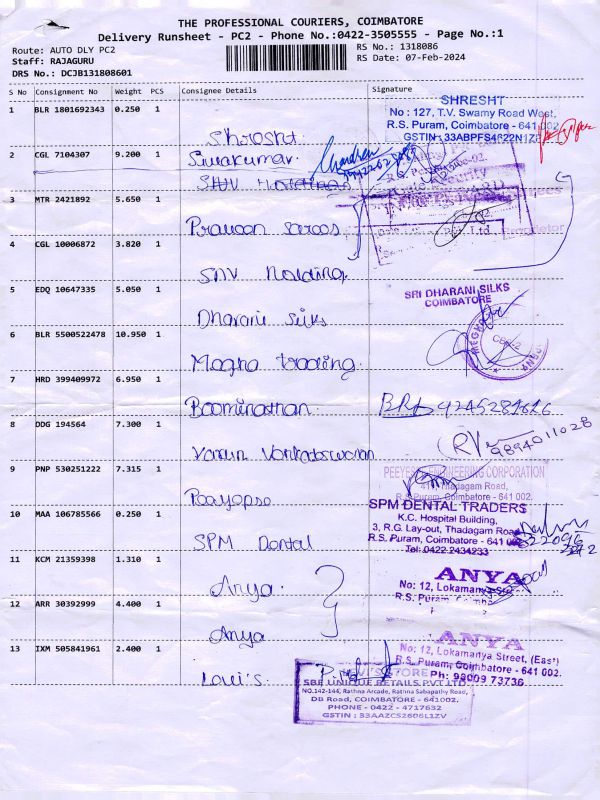 THE PROFESSIONAL COURIERS, COIMBATORE
Delivery Runsheet - PC2 - Phone No.:0422-3505555 - Page No.:1
Route: AUTO DLY PC2
Staff: RAJAGURU
DRS No.: DCJB131808601
RS No.: 1318086
RS Date: 07-Feb-2024
S No Consignment No Weight PCS Consignee Details Signature
1 BLR 1801692343 0.250 1
Shrosht
SHRESHT
No : 127, T.V. Swamy Road West,
R.S. Puram, Coimbatore - 641 002
GSTIN :
2 CGL 7104307 9.200 1
Sivakumar
SNV Holdings
3 MTR 2421892 5.650 1
Pravoon
4 CGL 10006872 3.820 1
SNV Holding
5 EDQ 10647335 5.050 1
Dharani silks
SRI DHARANI SILKS
COIMBATORE
6 BLR 5500522478 10.950 1
Magna trading
CBE-2
7 HRD 399409972 6.950 1
Boominathan
8 DDG 194564 7.300 1
Varun Vonkateswaran
9894011028
9 PNP 530251222 7.315 1
ENGINEERING CORPORATION
Thadagam Road,
R.S. Puram, Coimbatore - 641 002.
10 MAA 106785566 0.250 1
SPM Dental
SPM DENTAL TRADERS
K.C. Hospital Building,
3, R.G. Lay-out, Thadagam Road
R.S. Puram, Coimbatore - 641 002
Tel: 0422 2434233
11 KCM 21359398 1.310 1
Anya
ANYA
No: 12, Lokamanya
R.S. Puram
12 ARR 30392999 4.400 1
Anya
ANYA
No: 12, Lokamanya Street, (East)
R.S. Puram, Coimbatore - 641 002.
Ph: 98009 73736
13 IXM 505841961 2.400 1
Lovi's
SBF UNIQUE RETAILS PVT LTD
NO.142-144, Rathna Arcade, Rathna Sabapathy Road,
DB Road, COIMBATORE - 641002.
PHONE - 0422 - 4717632
GSTIN : 33AAZCS2606L1ZV